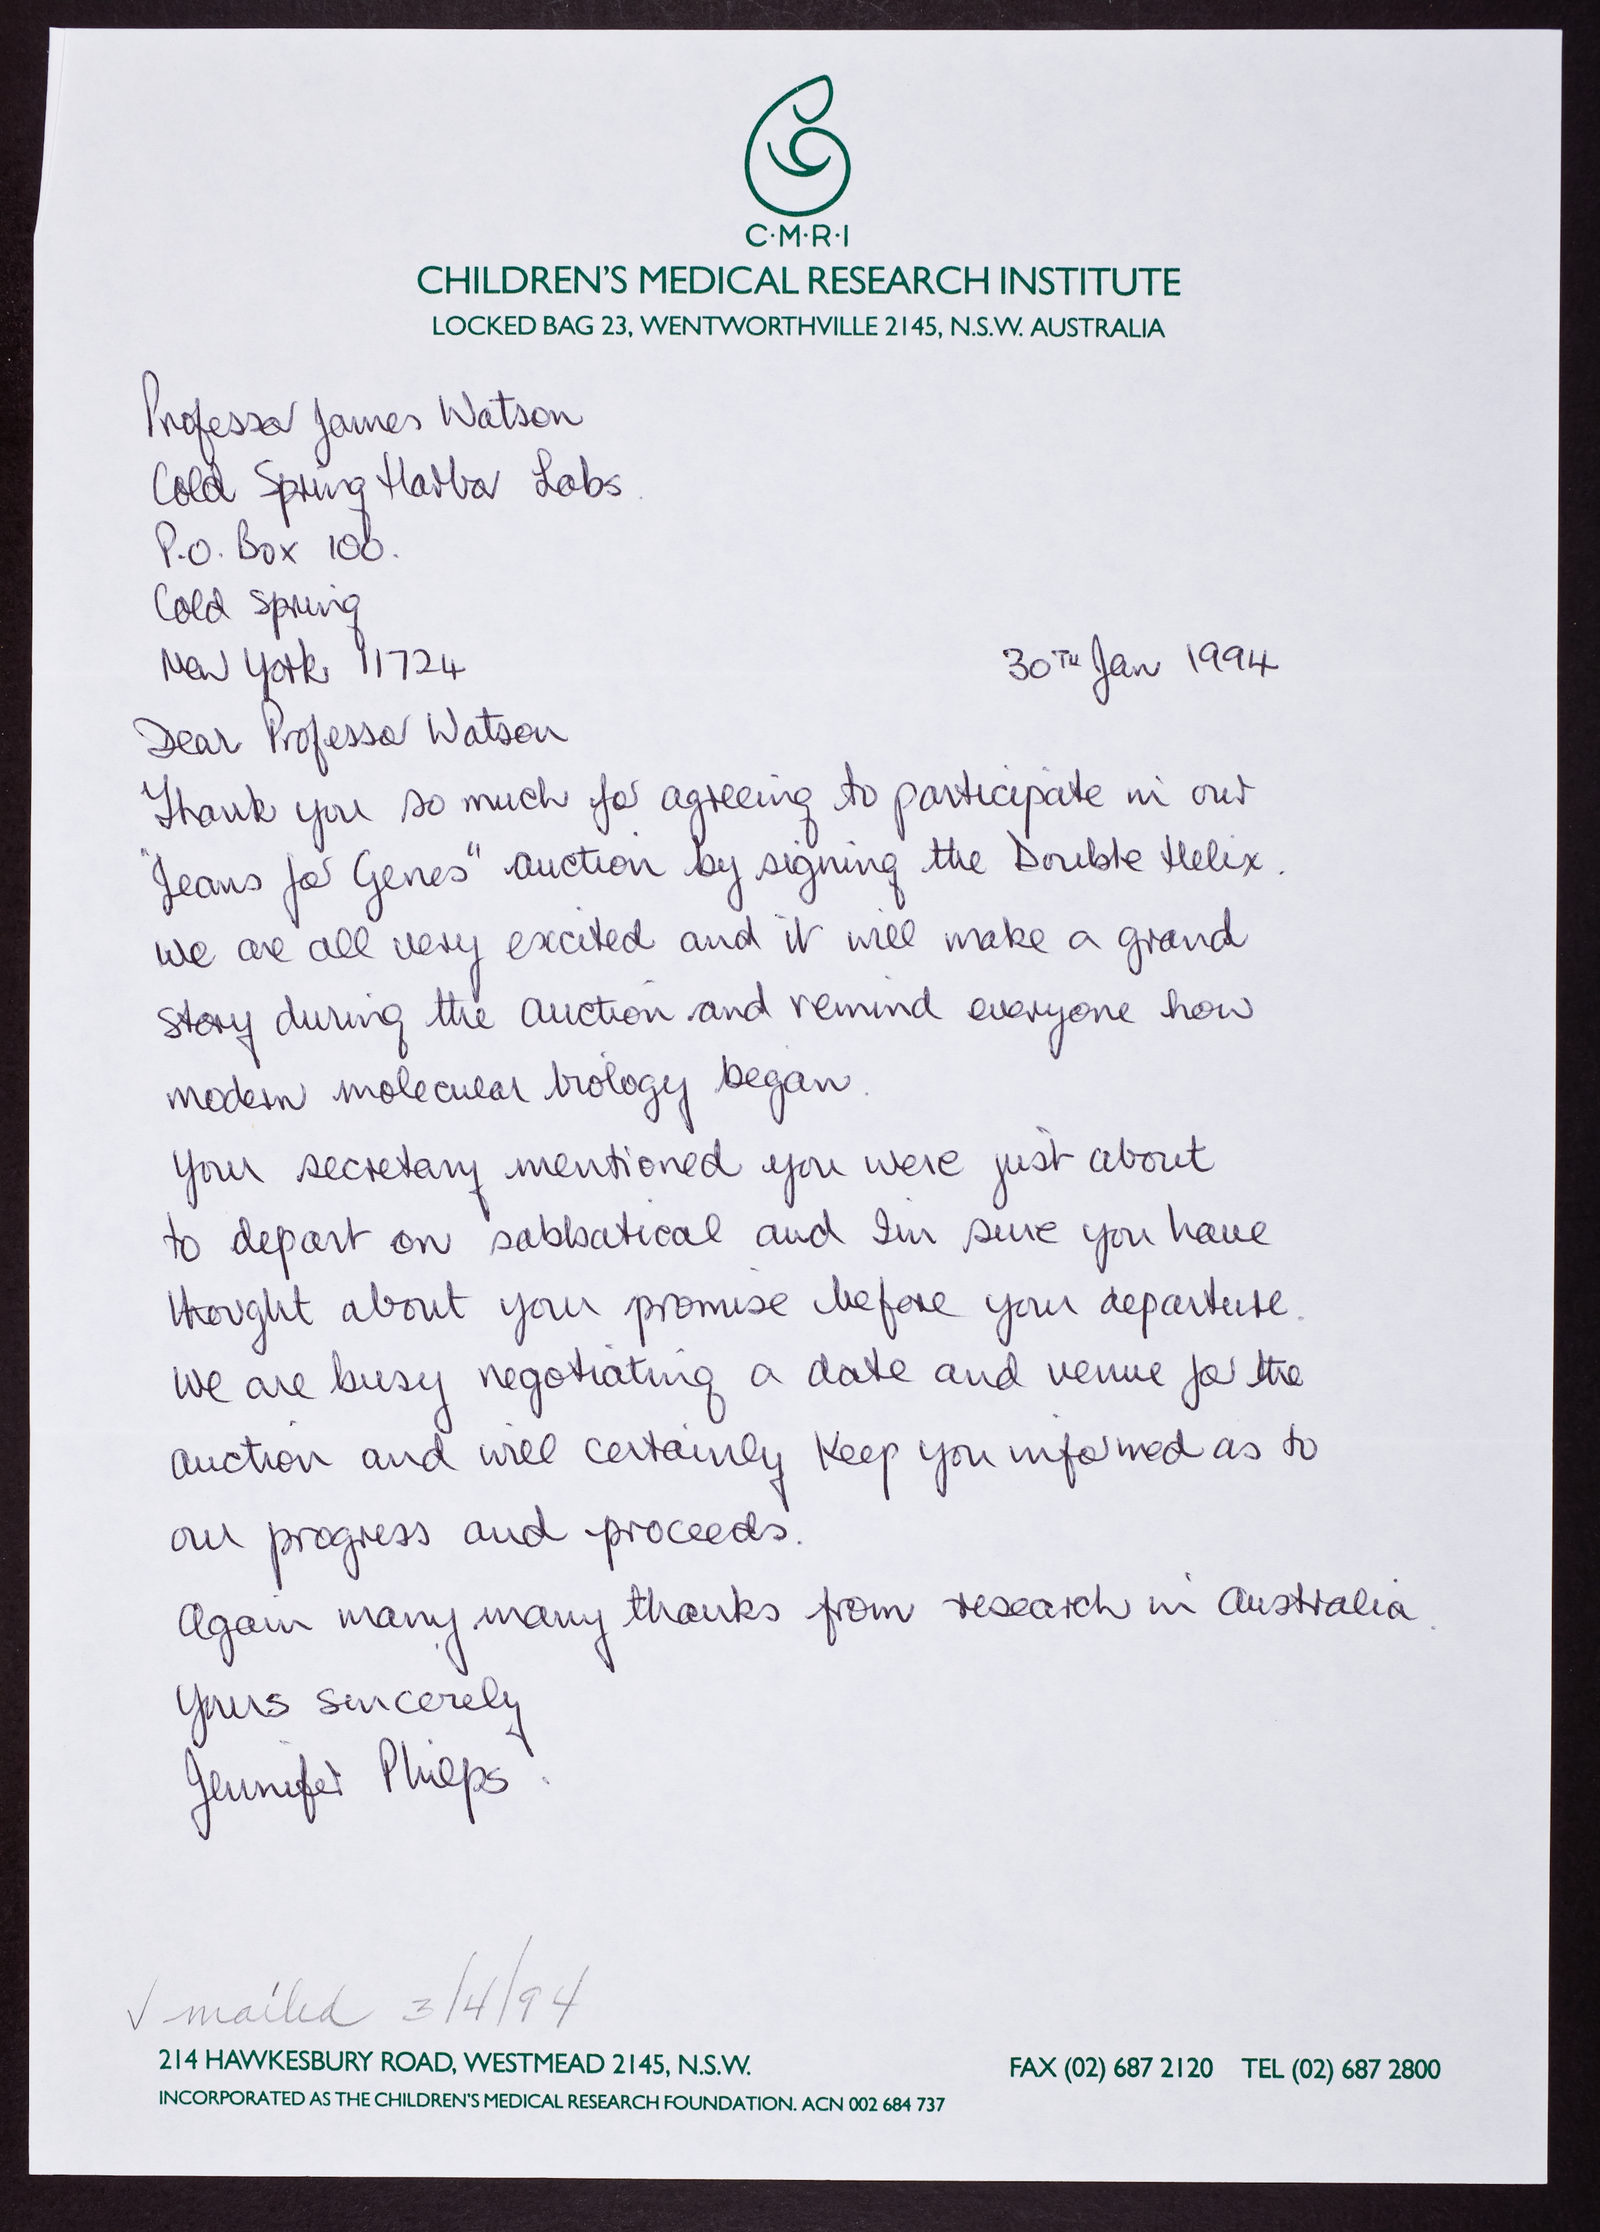 C·M·R·I
CHILDREN'S MEDICAL RESEARCH INSTITUTE
LOCKED BAG 23, WENTWORTHVILLE 2145, N.S.W. AUSTRALIA
Professor James Watson
Cold Spring Harbor Labs.
P.O. Box 100.
Cold Spring
New York 11724
30TH Jan 1994
Dear Professor Watson
Thank you so much for agreeing to participate in our
"Jeans for Genes" auction by signing the Double Helix.
We are all very excited and it will make a grand
story during the auction and remind everyone how
modern molecular biology began.
Your secretary mentioned you were just about
to depart on sabbatical and I'm sure you have
thought about your promise before your departure.
We are busy negotiating a date and venue for the
auction and will certainly keep you informed as to
our progress and proceeds.
Again many many thanks from research in Australia.
Yours sincerely
Jennifer Philps.
✓ mailed 3/4/94
214 HAWKESBURY ROAD, WESTMEAD 2145, N.S.W.
FAX (02) 687 2120 TEL (02) 687 2800
INCORPORATED AS THE CHILDREN'S MEDICAL RESEARCH FOUNDATION. ACN 002 684 737